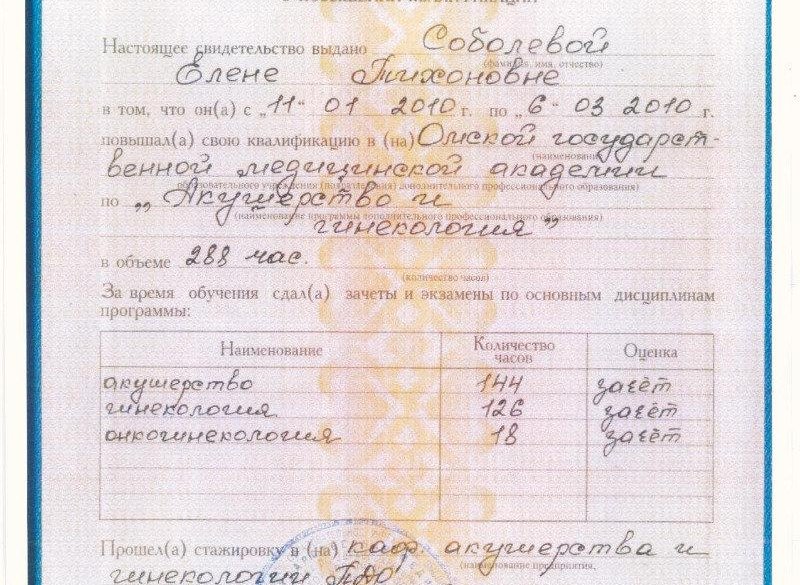 Настоящее свидетельство выдано Соболевой
(фамилия, имя, отчество)
Елене Тихоновне
в том, что он(а) с „11“ 01 2010 г. по „6“ 03 2010 г.
повышал(а) свою квалификацию в (на) Омской государст-
(наименование
венной медицинской академии
образовательного учреждения (подразделения) дополнительного профессионального образования)
по „Акушерство и
(наименование программы дополнительного профессионального образования)
гинекология”
в объеме 288 час.
(количество часов)
За время обучения сдал(а) зачеты и экзамены по основным дисциплинам
программы:
Наименование Количество часов Оценка
акушерство 144 зачёт
гинекология 126 зачёт
онкогинекология 18 зачёт
Прошел(а) стажировку в (на) каф. акушерства и
(наименование предприятия,
гинекологии ПДО